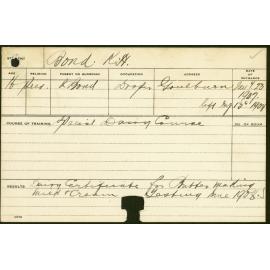 Bond K.H.
AGE RELIGION PARENT OR GUARDIAN OCCUPATION ADDRESS
16 Pres. Bond Goulburn Jan 23
1907
left Aug 1907
COURSE OF TRAINING
Special Dairy Course
RESULTS Dairy Certificate for Butter making
Milk & Cream Testing June 1908